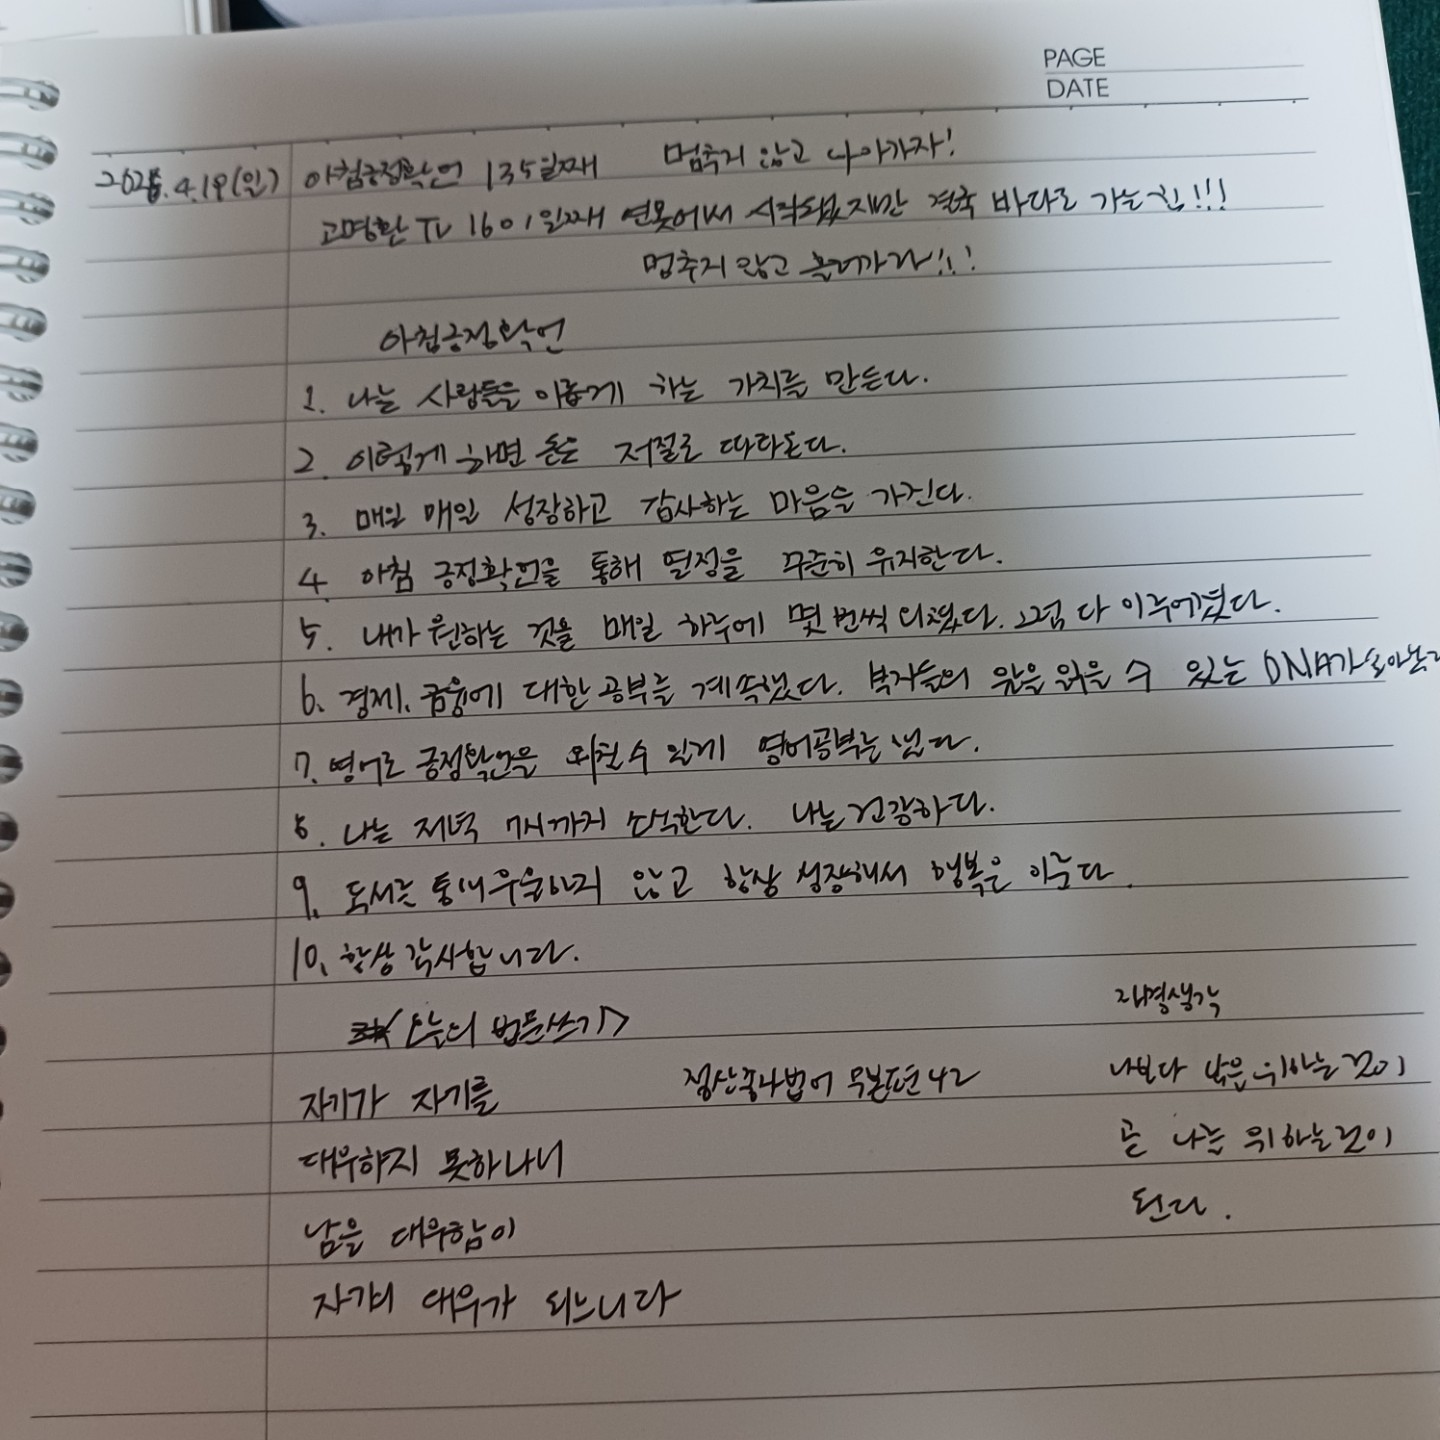 PAGE
DATE
2026.4.19(일) 아침긍정확언 135일째 멈추지 않고 나아가자!
고명환 TV 1601일째 연못에서 시작됐지만 결국 바다로 가는 힘!!!
멈추지 않고 흘러가라!!!
아침긍정확언
1. 나는 사람들을 이롭게 하는 가치를 만든다.
2. 이렇게 하면 돈은 저절로 따라온다.
3. 매일 매일 성장하고 감사하는 마음을 가진다.
4. 아침 긍정확언을 통해 열정을 꾸준히 유지한다.
5. 내가 원하는 것을 매일 하루에 몇 번씩 외쳤다. 그럼 다 이루어졌다.
6. 경제, 금융에 대한 공부를 계속했다. 부자들의 읽을 수 있는 DNA가
7. 영어로 긍정확언을 외칠 수 있게 영어공부를 했다.
8. 나는 저녁 7시까지 소식한다. 나는 건강하다.
9. 독서를 통해 우울하지 않고 항상 성장해서 행복을 이룬다.
10. 항상 감사합니다.
<오늘의 법문쓰기>
자기가 자기를
대우하지 못하나니
남을 대우함이
자기의 대우가 되느니라
정산종사법어 무본편 42
자명생각
나보다 남을 위하는 것이
곧 나를 위하는 것이
된다.